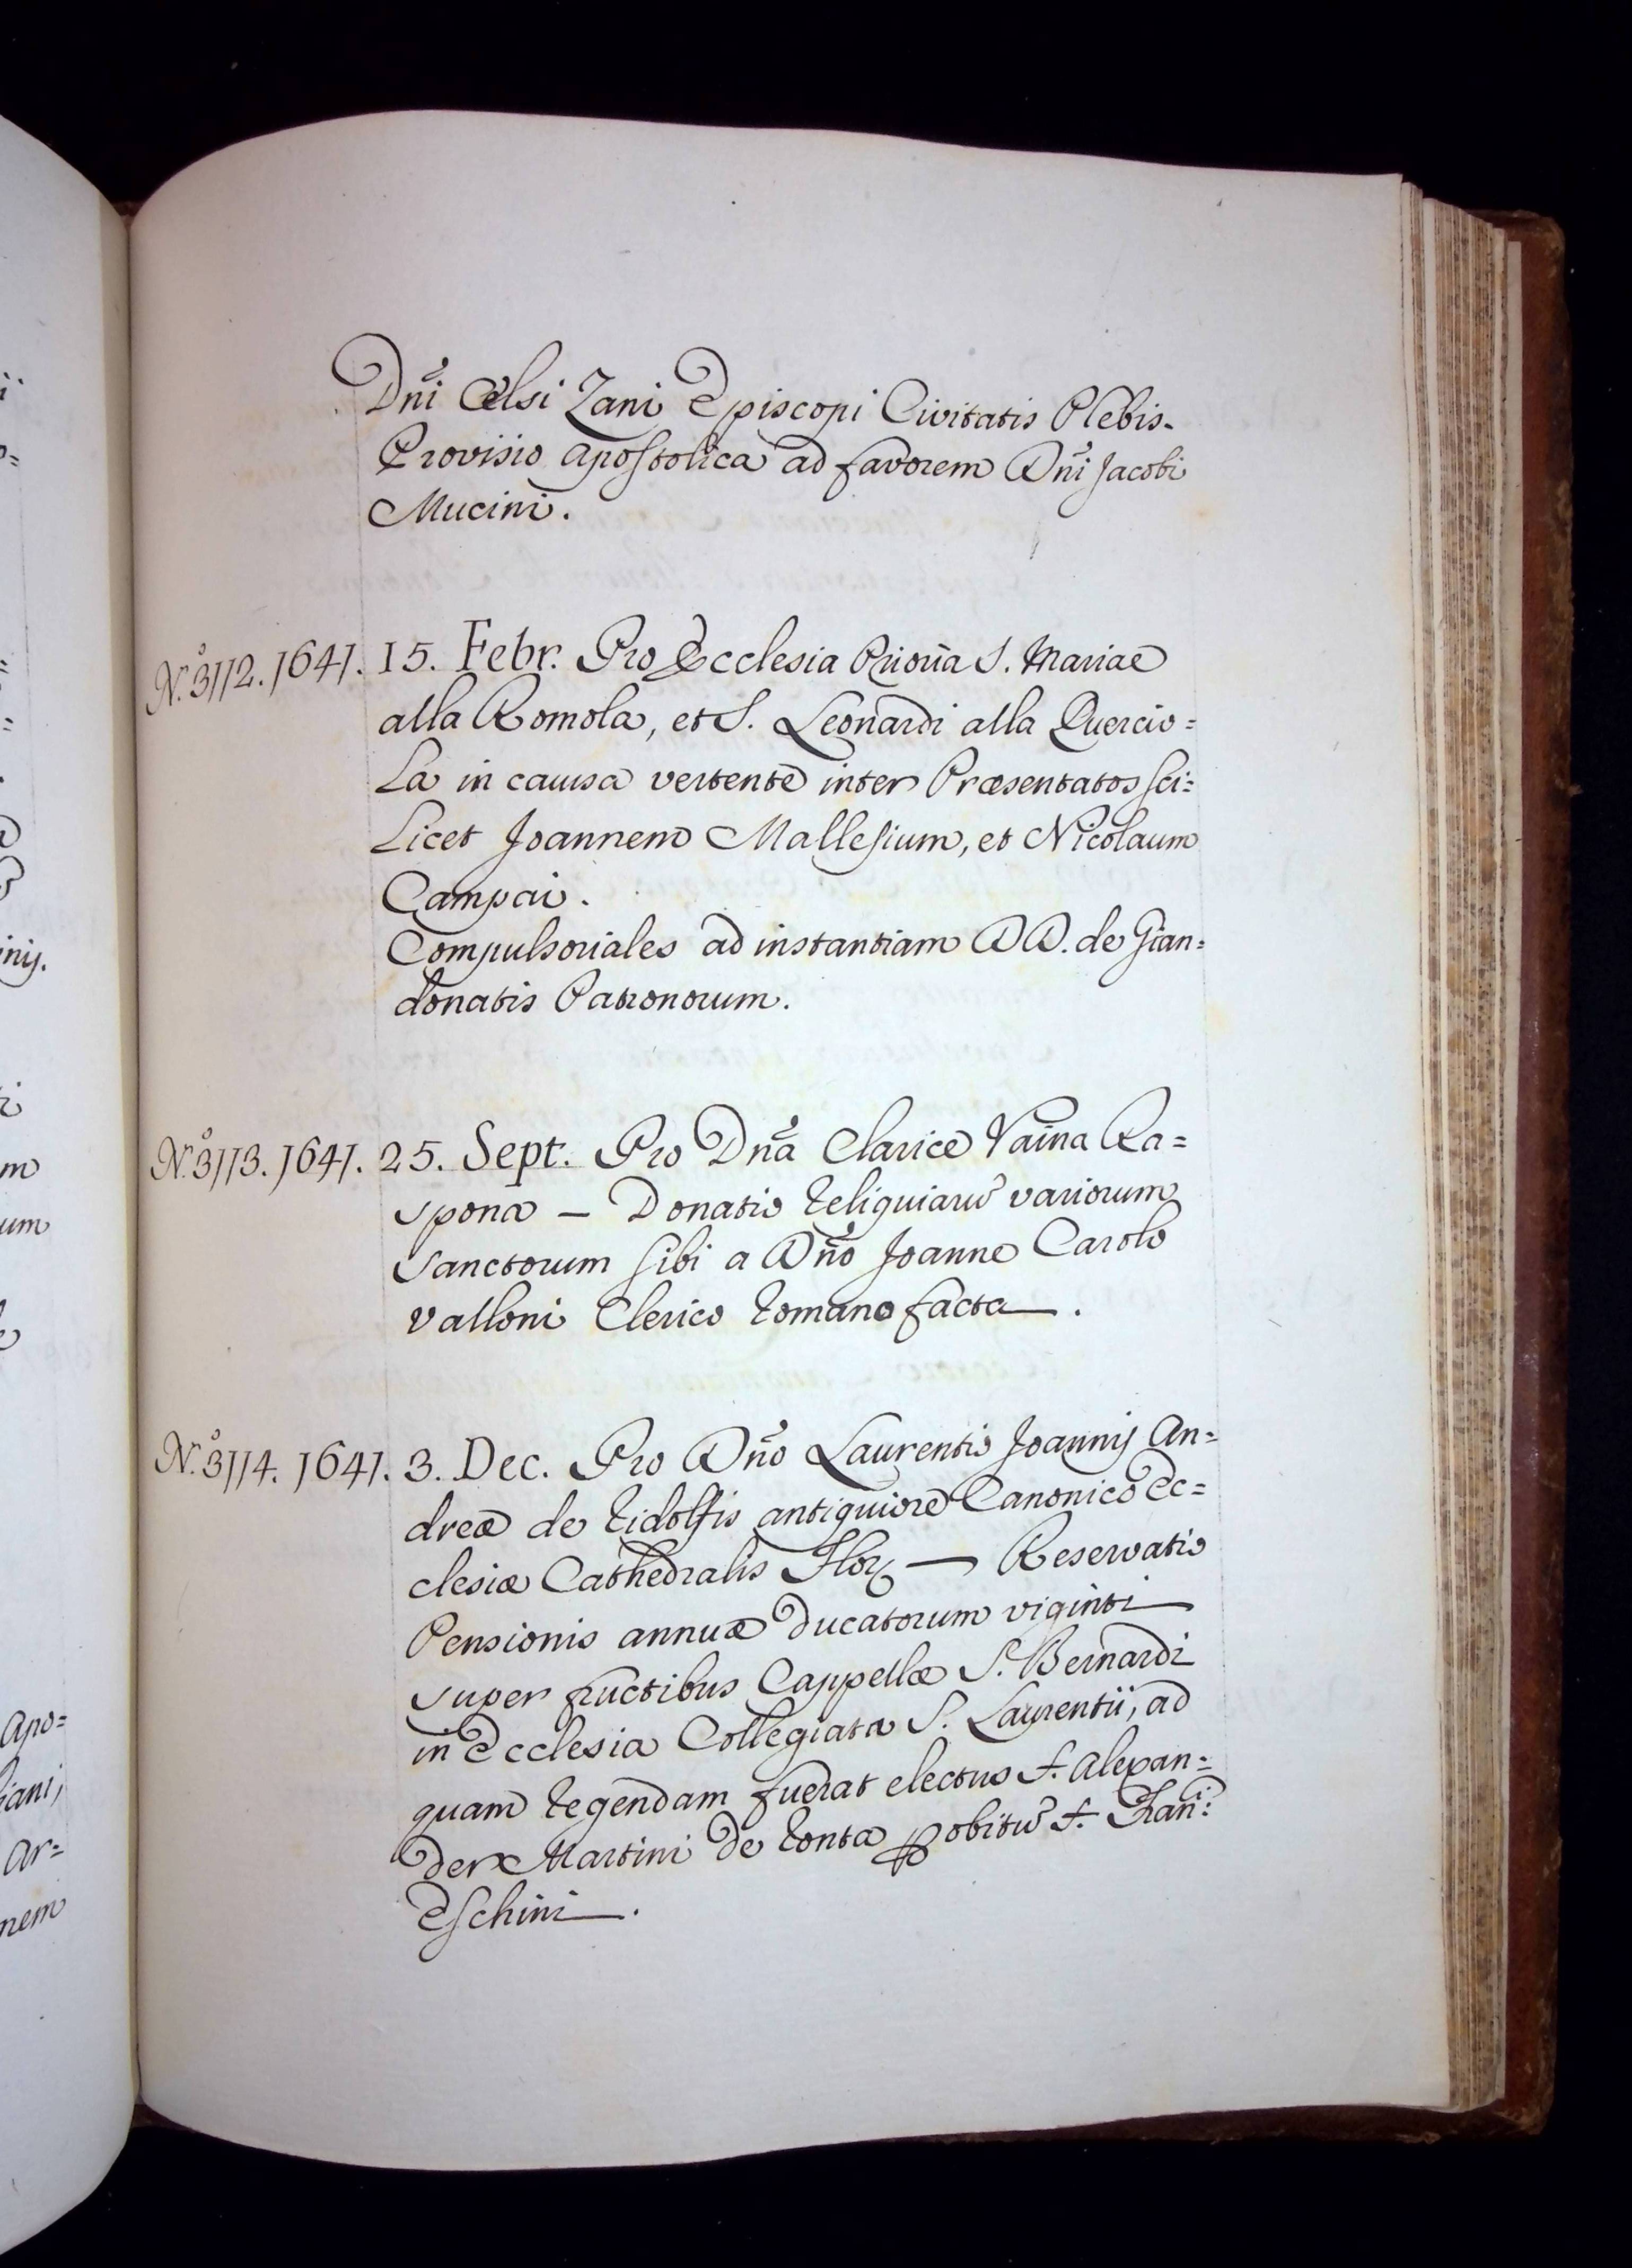 Dñi Celsi Zani Episcopi Civitatis Plebis.
Provisio Apostolica ad favorem Dñi Jacobi
Mucini.
N.º 3112. 1641. 15. Febr. Pro Ecclesia Priorña S. Mariae
alla Romola, et S. Leonardi alla Quercio=
la in causa vertente inter Præsentatos sci=
licet Joannem Mallesium, et Nicolaum
Campai.
Compulsoriales ad instantiam DD. de Gian=
donatis Patronorum.
N.º 3113. 1641. 25. Sept. Pro Dñã Clarice Vaina Ra=
spona — Donatio Reliquiarũ variorum
Sanctorum sibi a Dño Joanne Carolo
Valloni Clerico Romano facta —.
N.º 3114. 1641. 3. Dec. Pro Dño Laurentio Joannis An=
dreæ de Ridolfis antiquiore Canonico Ec=
clesiæ Cathedralis Flor — Reservatio
Pensionis annuæ Ducatorum viginti
super fructibus Cappellæ S. Bernardi
in Ecclesia Collegiata S. Laurentii, ad
quam regendam fuerat electus f. Alexan=
der Martini de Ronta obitũ f.
Eschini —.